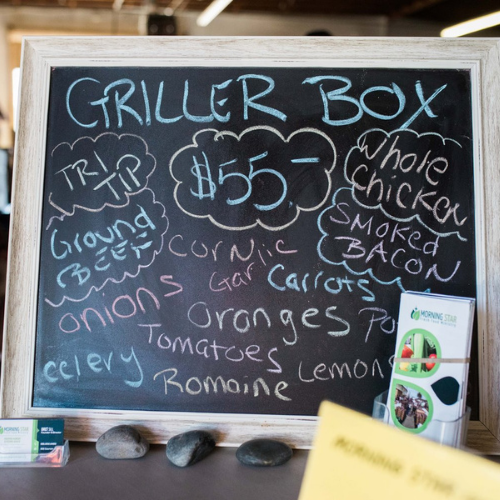 GRILLER BOX
TRI TIP
$55.-
Whole Chicken
Ground BEEF
Smoked BACON
Corn
Garlic
Carrots
onions
Oronges
Po
Tomatoes
celery
Romaine
Lemon
MORNING STAR